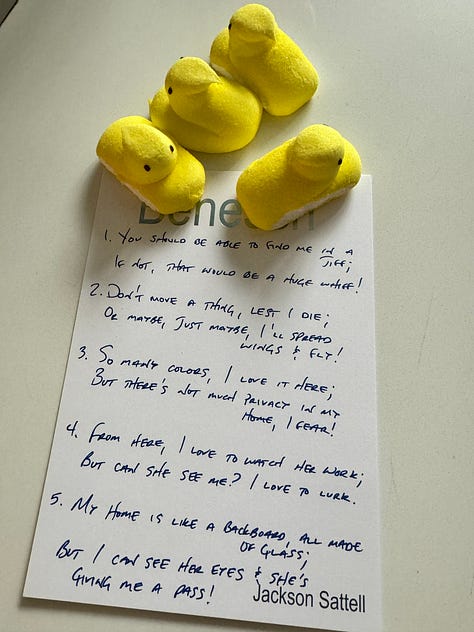 1. You should be able to find me in a
Jiff;
If not, that would be a huge whiff!
2. Don't move a thing, lest I die;
Or maybe, just maybe, I'll spread
wings & fly!
3. So many colors, I love it here;
But there's not much privacy in my
home, I fear!
4. From here, I love to watch her work;
But can she see me? I love to lurk.
5. My home is like a backboard, all made
of glass;
But I can see her eyes & she's
giving me a pass!
Jackson Sattell